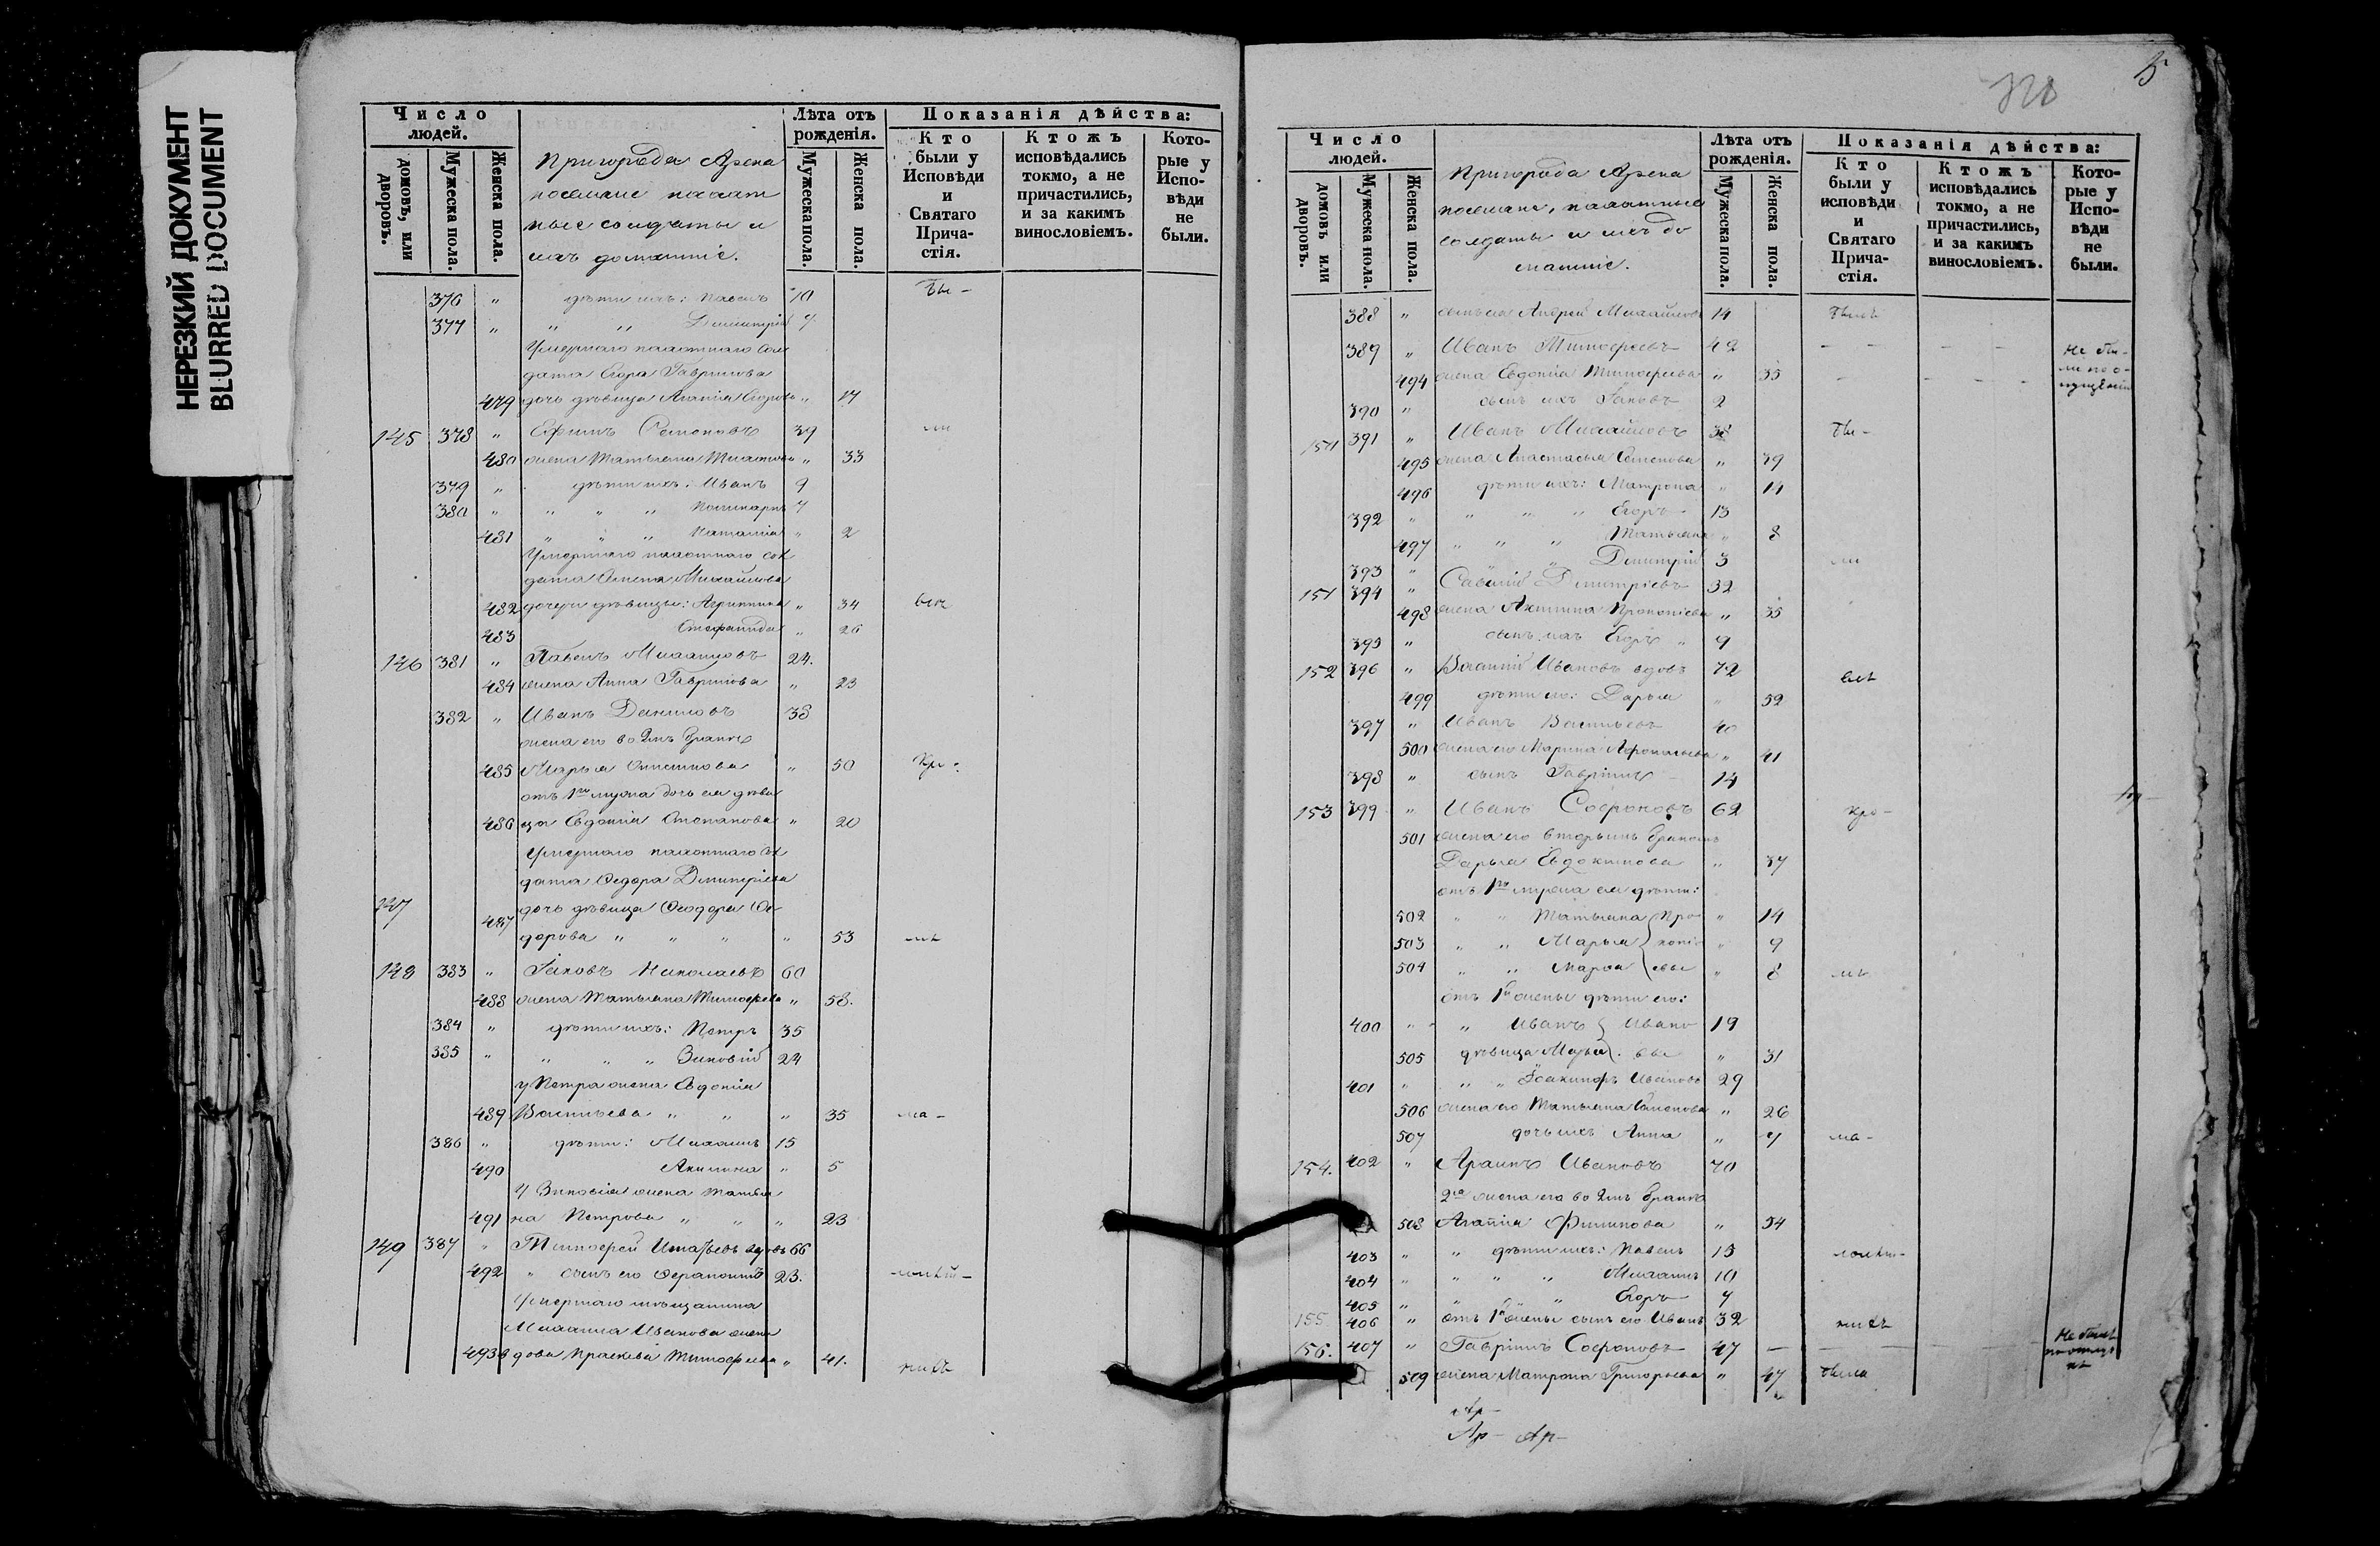 НЕРЕЗКИЙ ДОКУМЕНТ
BLURRED DOCUMENT
Число людей.
домовъ, или дворовъ.
Мужеска пола.
Женска пола.
Пригорода Арска
пахатные солдаты и
ихъ домашніе.
Лѣта отъ рожденія.
Мужеска пола.
Женска пола.
Показанія дѣйства:
Кто были у Исповѣди и Святаго Причастія.
Ктожъ исповѣдались токмо, а не причастились, и за какимъ винословіемъ.
Которые у Исповѣди не были.
376 " дѣти ихъ: Павелъ 10 бы-
377 " " " Димитрій 7
Умершаго пахотнаго сол
дата Егора Гаврилова
479 дочь дѣвица Агапія Егорова " 17
145 378 " Ефимъ Семеновъ 39 ли
480 жена Татьяна " 33
379 " дѣти ихъ: Иванъ 9
380 " " " " Поликарпъ 7
481 " " " Наталія " 2
Умершаго пахотнаго сол
дата Михайлова
482 дочери дѣвицы: Агриппина " 34 все
483 Стефанида " 26
146 381 " Павелъ Михайловъ 24.
484 жена Анна Гаврилова " 23
382 " Иванъ Даниловъ 38
жена его во 2мъ бракѣ
485 Марья " 50 кро-
отъ 1го мужа дочь ея дѣви
486 ца Евдокія Степанова " 20
Умершаго пахотнаго сол
дата Федора Димитріева
147 487 дочь дѣвица Феодора Фе
дорова " " " " 53
148 383 " Іаковъ Николаевъ 60
488 жена Татьяна Тимофеева " 58.
384 " дѣти ихъ: Петръ 35
385 " " " " Зиновій 24
у Петра жена Евдокія
489 Васильева " " " 35 ма-
386 " дѣти: Михаилъ 15
490 Акилина " 5
У Зиновія жена Татья
491 на Петрова " " " 23
149 387 " Тимофей вдовъ 66
492 " сынъ его Ферапонтъ 23.
Умершаго мѣщанина
Михаила Иванова жена
493 вдова Праскевія Тимофеева " 41.
320
Число людей.
домовъ или дворовъ.
Мужеска пола.
Женска пола.
Пригорода Арска
пахотные
солдаты и ихъ до
машніе.
Лѣта отъ рожденія.
Мужеска пола.
Женска пола.
Показанія дѣйства:
Кто были у исповѣди и Святаго Причастія.
Ктожъ исповѣдались токмо, а не причастились, и за какимъ винословіемъ.
Которые у Исповѣди не были.
388 " Андрей Михайловъ 14
389 " Иванъ Тимофеевъ 42 - - - - Не бы-
494 жена Евдокія Тимофеева " 35 - - - - ли по о-
пущенію
390 " сынъ ихъ Іаковъ 2
150 391 " Иванъ Михайловъ 38 бы-
495 жена Анастасья Семенова " 39
496 дѣти ихъ: Матрона " 14
392 " " " " Егоръ 13
497 " " " Татьяна " 8
393 " " Димитрій 3 ли
151 394 " Савелій Димитріевъ 32
498 жена Акилина Прокопіева " 35
395 " сынъ ихъ Егоръ " 9
152 396 " Василій Ивановъ вдовъ 72 все
499 дѣти его: Дарья " 52
397 " Иванъ Васильевъ 40
500 жена его Марина " 41
398 " сынъ Гавріилъ 14
153 399 " Иванъ Софроновъ 62 кро-
501 жена его вторымъ бракомъ
Дарья Евдокимова " 37
отъ 1го мужа ея дѣти:
502 " " Татьяна Про " 14
503 " " Марья копі " 9
504 " " Марѳа евы " 8
отъ 1й жены дѣти его:
400 " " Иванъ Ивано 19
505 дѣвица Марья вы " 31
401 " " " Іоакинфъ Ивановъ 29
506 жена его Татьяна Семенова " 26
507 дочь ихъ Анна " 7 ма-
154. 402 " Ивановъ 70
2я жена его во 2мъ бракѣ
508 Агапія Филипова " 54
403 " " дѣти ихъ: Павелъ 15
404 " " " " Михаилъ 10
405 " " " " Егоръ 7
155 406 " отъ 1й жены сынъ его Иванъ 32
156. 407 " Гавріилъ Софроновъ 47 - - - Не былъ
509 жена Матрона Григорьева " 47 была
Ар-
Ар- Ар-